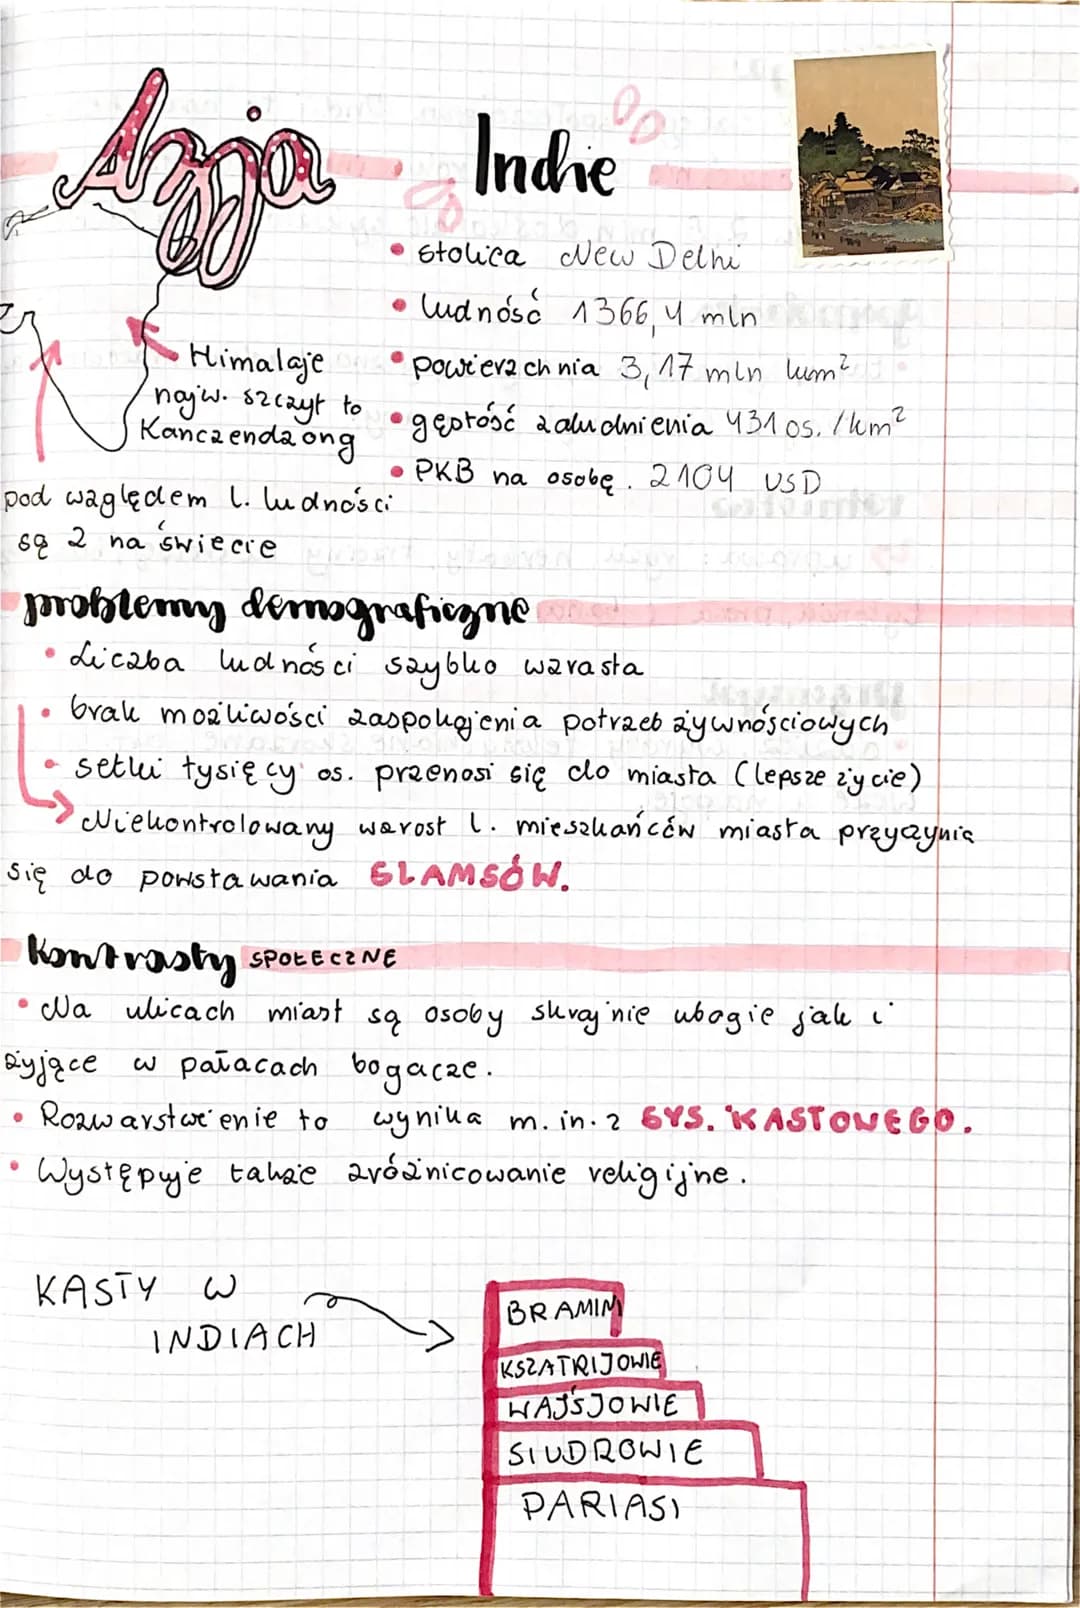 Azja
Indie
• stolica New Delhi
• ludność 1366,4 mln
• powierzchnia 3,17 mln km²
• gęstość zaludnienia 431 os./km²
• PKB na osobę. 2104 USD
• Himalaje
najw. szczyt to
Kanczendzong
pod względem l. ludności
są 2 na świecie
problemy demograficzne
• Liczba ludności szybko wzrasta
• brak możliwości zaspokojenia potrzeb żywnościowych
• setki tysięcy os. przenosi się do miasta (lepsze życie)
Niekontrolowany wzrost l. mieszkańców miasta przyczynia
się do powstawania SLAMSÓW.
Kontrasty SPOŁECZNE
• Na ulicach miast są osoby skrajnie ubogie jak i
żyjące w pałacach bogacze.
• Rozwarstwienie to wynika m.in. z SYS. KASTOWEGO.
• Występuje także zróżnicowanie religijne.
KASTY W
INDIACH
BRAMINI
KSZATRIJOWIE
WAJŚJOWIE
SIUDROWIE
PARIASI